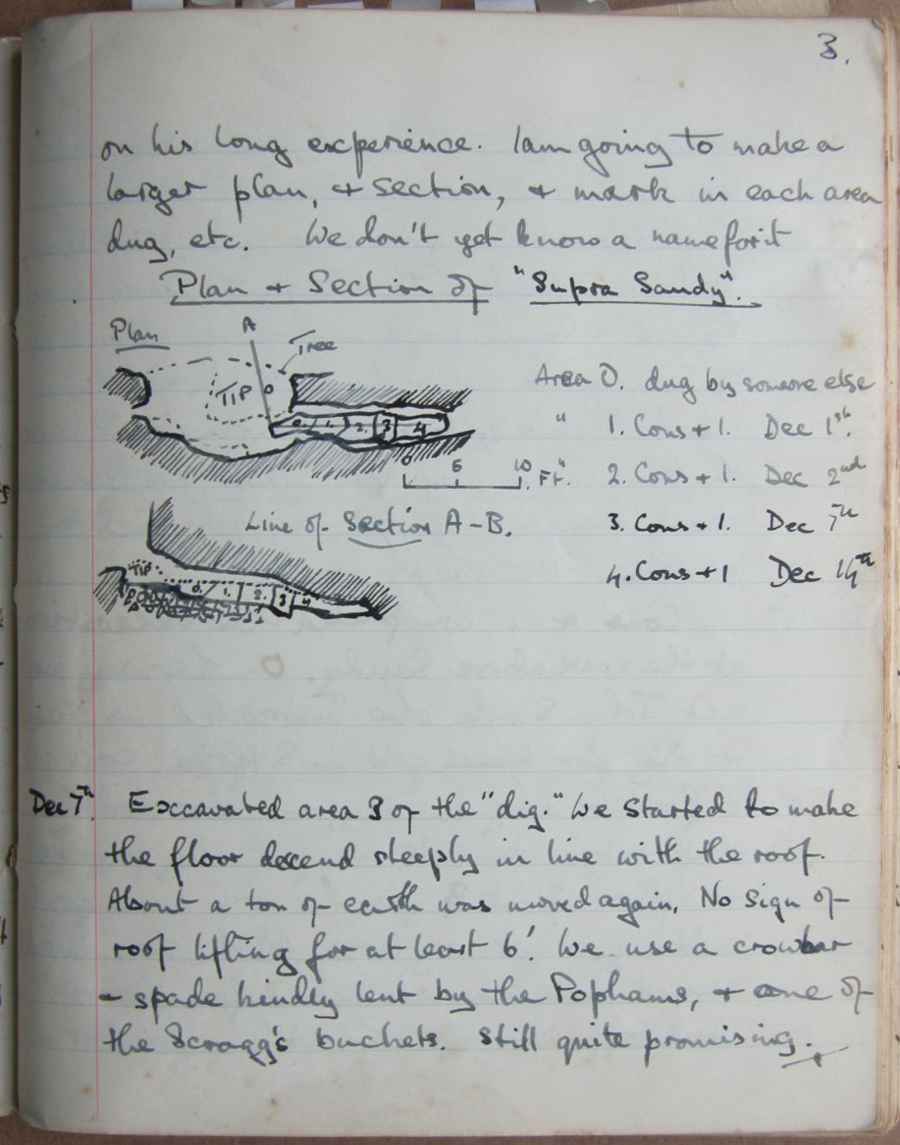 3.
on his long experience. I am going to make a
larger plan, & section, & mark in each area
dug, etc. We don't yet know a name for it
Plan + Section of "Supra Sandy".
Plan
A
Tree
TIP
0
0. 1. 2. 3 4
0 5 10 Ft.
Area 0. dug by someone else
" 1. Cons + 1. Dec 1st.
2. Cons + 1. Dec 2nd
3. Cons + 1. Dec 7th
4. Cons + 1 Dec 14th
Line of Section A-B.
TIP
0. 1. 2. 3 4
Dec 7th. Exccavated area 3 of the "dig." We started to make
the floor descend steeply in line with the roof.
About a ton of earth was moved again. No sign of
roof lifting for at least 6'. We use a crowbar
- spade kindly lent by the Pophams, + one of
the Scragg's buckets. Still quite promising.